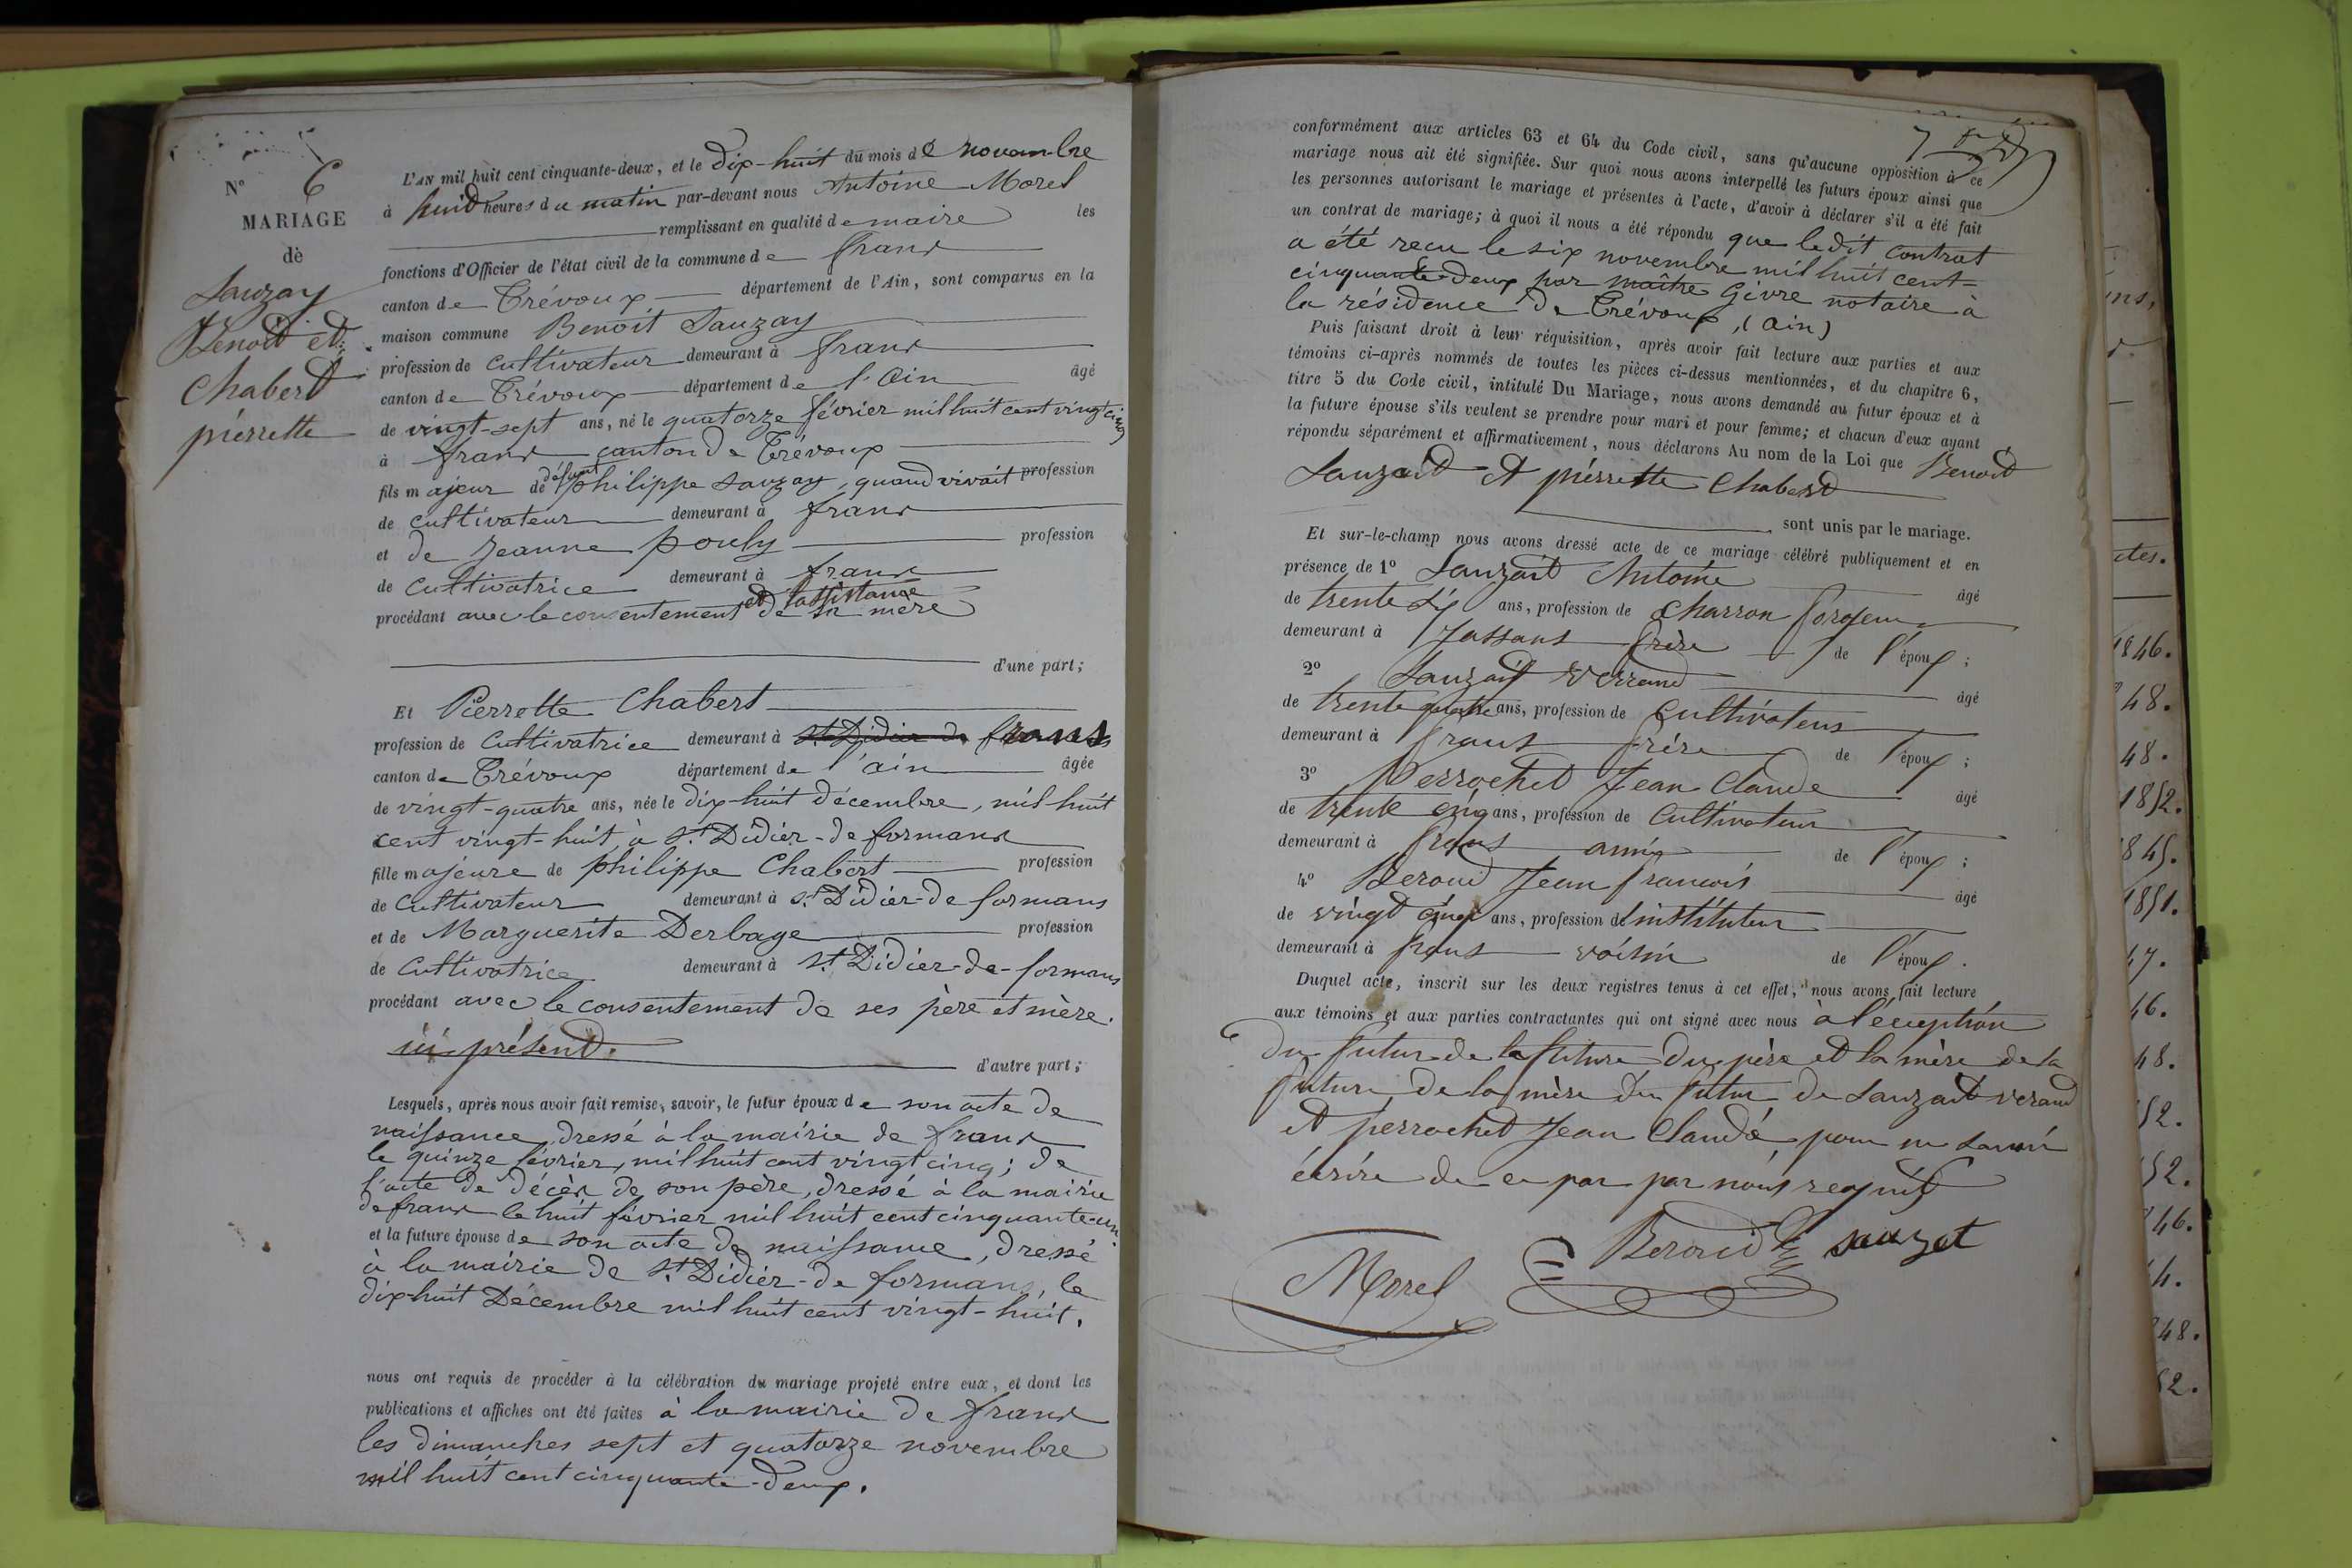 N° 6
MARIAGE
de
Sauzay
Benoit et
Chabert
pierrette
L'AN mil huit cent cinquante-deux, et le dix-huit du mois de novembre
à huit heures du matin par-devant nous Antoine Morel
remplissant en qualité de maire les
fonctions d'Officier de l'état civil de la commune de frans
canton de Trévoux département de l'Ain, sont comparus en la
maison commune Benoit Sauzay
profession de cultivateur demeurant à frans
canton de Trévoux département de l'Ain âgé
de vingt-sept ans, né le quatorze février mil huit cent vingt cinq
à frans canton de Trévoux
fils majeur de défunt philippe Sauzay, quand vivait profession
de cultivateur demeurant à frans
et de Jeanne pouly profession
de cultivatrice demeurant à frans
procédant avec le consentement et l'assistance de sa mère
d'une part;
Et Pierrette Chabert
profession de cultivatrice demeurant à St Didier de frans
canton de Trévoux département de l'ain âgée
de vingt-quatre ans, née le dix-huit décembre, mil huit
cent vingt-huit, à St Didier-de formans
fille majeure de philippe Chabert profession
de cultivateur demeurant à St Didier-de formans
et de Marguerite Derbage profession
de cultivatrice demeurant à St Didier-de-formans
procédant avec le consentement de ses père et mère.
ici présent.
d'autre part;
Lesquels, après nous avoir fait remise, savoir, le futur époux de son acte de
naissance, dressé à la mairie de frans
le quinze février, mil huit cent vingt cinq; de
l'acte de décès de son père, dressé à la mairie
de frans le huit février mil huit cent cinquante-un.
et la future épouse de son acte de naissance, dressé
à la mairie de St Didier-de formans, le
dix-huit Décembre mil huit cent vingt-huit.
nous ont requis de procéder à la célébration du mariage projeté entre eux, et dont les
publications et affiches ont été faites à la mairie de frans
les dimanches sept et quatorze novembre
mil huit cent cinquante-deux.
conformément aux articles 63 et 64 du Code civil, sans qu'aucune opposition à ce
mariage nous ait été signifiée. Sur quoi nous avons interpellé les futurs époux ainsi que
les personnes autorisant le mariage et présentes à l'acte, d'avoir à déclarer s'il a été fait
un contrat de mariage; à quoi il nous a été répondu que ledit contrat
a été reçu le six novembre mil huit cent-
cinquante-deux par maître Gèvre notaire à
la résidence de Trévoux, (Ain)
Puis faisant droit à leur réquisition, après avoir fait lecture aux parties et aux
témoins ci-après nommés de toutes les pièces ci-dessus mentionnées, et du chapitre 6,
titre 5 du Code civil, intitulé Du Mariage, nous avons demandé au futur époux et à
la future épouse s'ils veulent se prendre pour mari et pour femme; et chacun d'eux ayant
répondu séparément et affirmativement, nous déclarons Au nom de la Loi que Benoit
Sauzait et piérrette Chabert
sont unis par le mariage.
Et sur-le-champ nous avons dressé acte de ce mariage célébré publiquement et en
présence de 1° Sauzait Antoine âgé
de trente six ans, profession de charron forgeur
demeurant à Jassans frère de l'époux;
2° Sauzait verrand âgé
de trente quatre ans, profession de cultivateur
demeurant à frans frère de l'époux;
3° Perrochet Jean Claude âgé
de trente cinq ans, profession de cultivateur
demeurant à frans ami de l'époux;
4° Beroud Jean francois âgé
de vingt cinq ans, profession d'instituteur
demeurant à frans voisin de l'époux.
Duquel acte, inscrit sur les deux registres tenus à cet effet, nous avons fait lecture
aux témoins et aux parties contractantes qui ont signé avec nous à l'éception
du futur de la future du père et la mère de la
future, de la mère du futur de Sauzait verand
et perrochet Jean Claude, pour ne savoir
écrire de ce par par nous requis
Morel Beroud sauzet
1846.
48.
48.
1852.
1845.
1851.
47.
46.
48.
52.
52.
46.
48.
52.